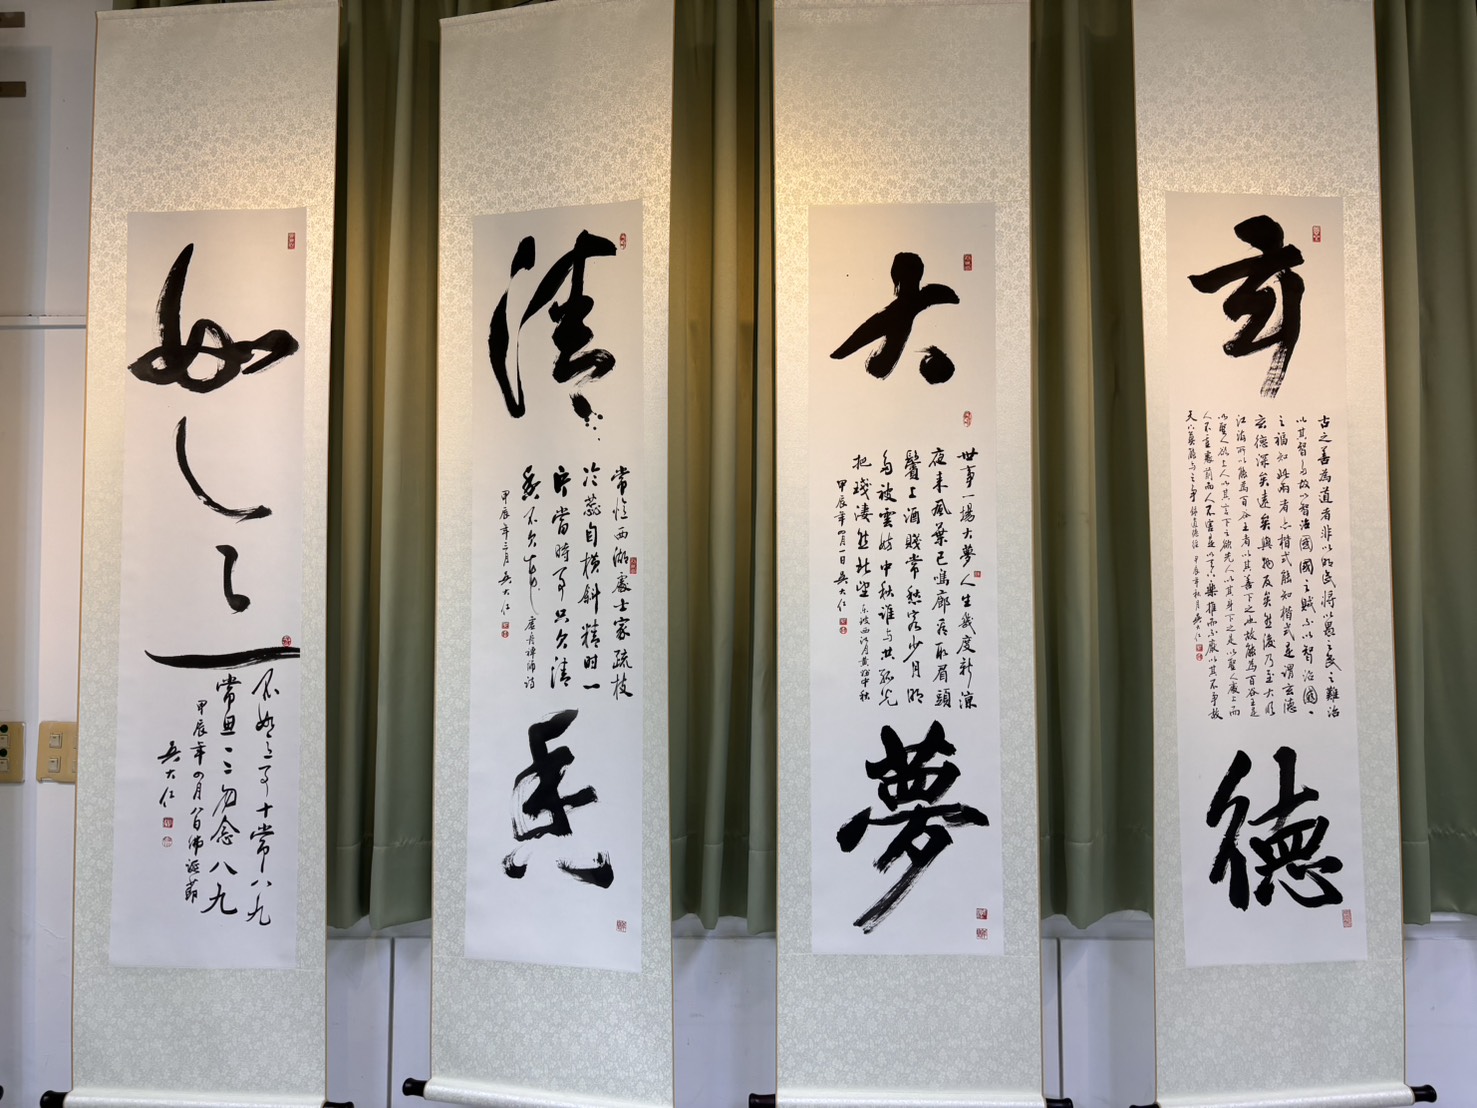 玄
古之善為道者非以明民將以愚之民之難治
以其智多故以智治國國之賊不以智治國
之福知此兩者亦楷式能知楷式是謂玄德
玄德深矣遠矣與物反矣然後乃至大順
江海所以能為百谷王者以其善下之也故能為百谷王是
以聖人欲上人以其言下之欲先人以其身下之是以聖人處上而
人不重處前而人不害是以天下樂推而不厭以其不爭故
天下莫能與之爭 錄道德經 甲辰年秋月吳大仁
德
大
世事一場大夢人生幾度新涼
夜來風葉已鳴廊看取眉頭
鬢上酒賤常愁客少月明
多被雲妨中秋誰與共孤光
把琖淒然北望 東坡西江月黃州中秋
甲辰年四月一日吳大仁
夢
清
常憶西湖處士家疏枝
冷蕊自橫斜精明一
片當時事只欠清
香不欠花 虛舟禪師詩
甲辰年三月吳大仁
香
如
不如意事十常八九
常思一二勿念八九
甲辰年四月八日佛誕節
吳大仁